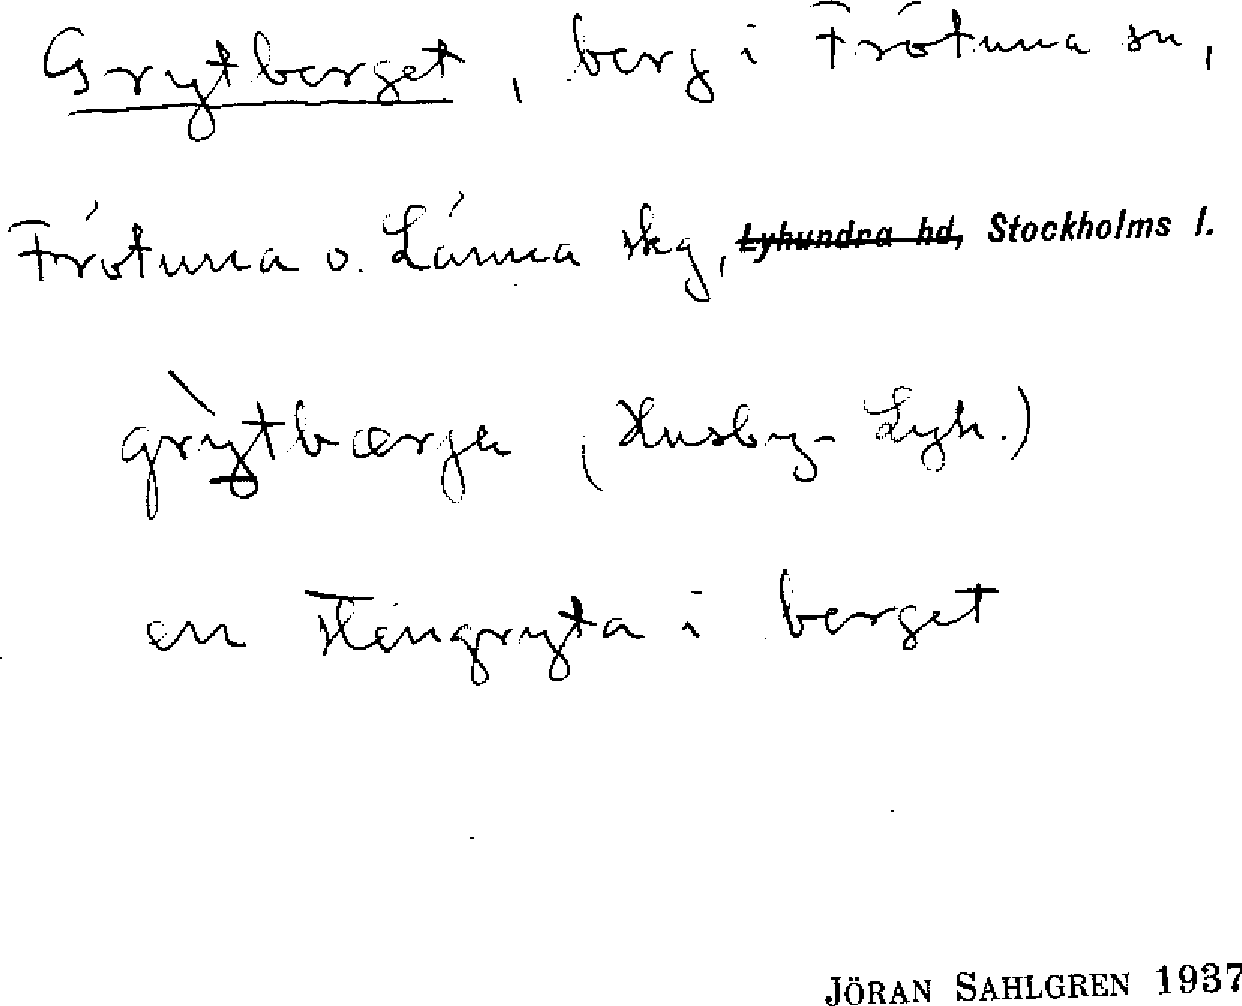 Grytberget, berg i Frötuna sn,
Frötuna o. Länna skg, Lyhundra hd, Stockholms l.
grỳtbærjə (Husby-Lyh.)
en stengryta i berget
JÖRAN SAHLGREN 1937